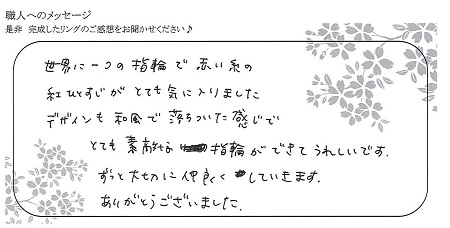 職人へのメッセージ
是非 完成したリングのご感想をお聞かせください♪
世界に一つの指輪で赤い糸の
紅ひとすじがとても気に入りました
デザインも和風で落ちついた感じで
とても素敵な指輪ができてうれしいです。
ずっと大切に仲良くしていきます。
ありがとうございました。